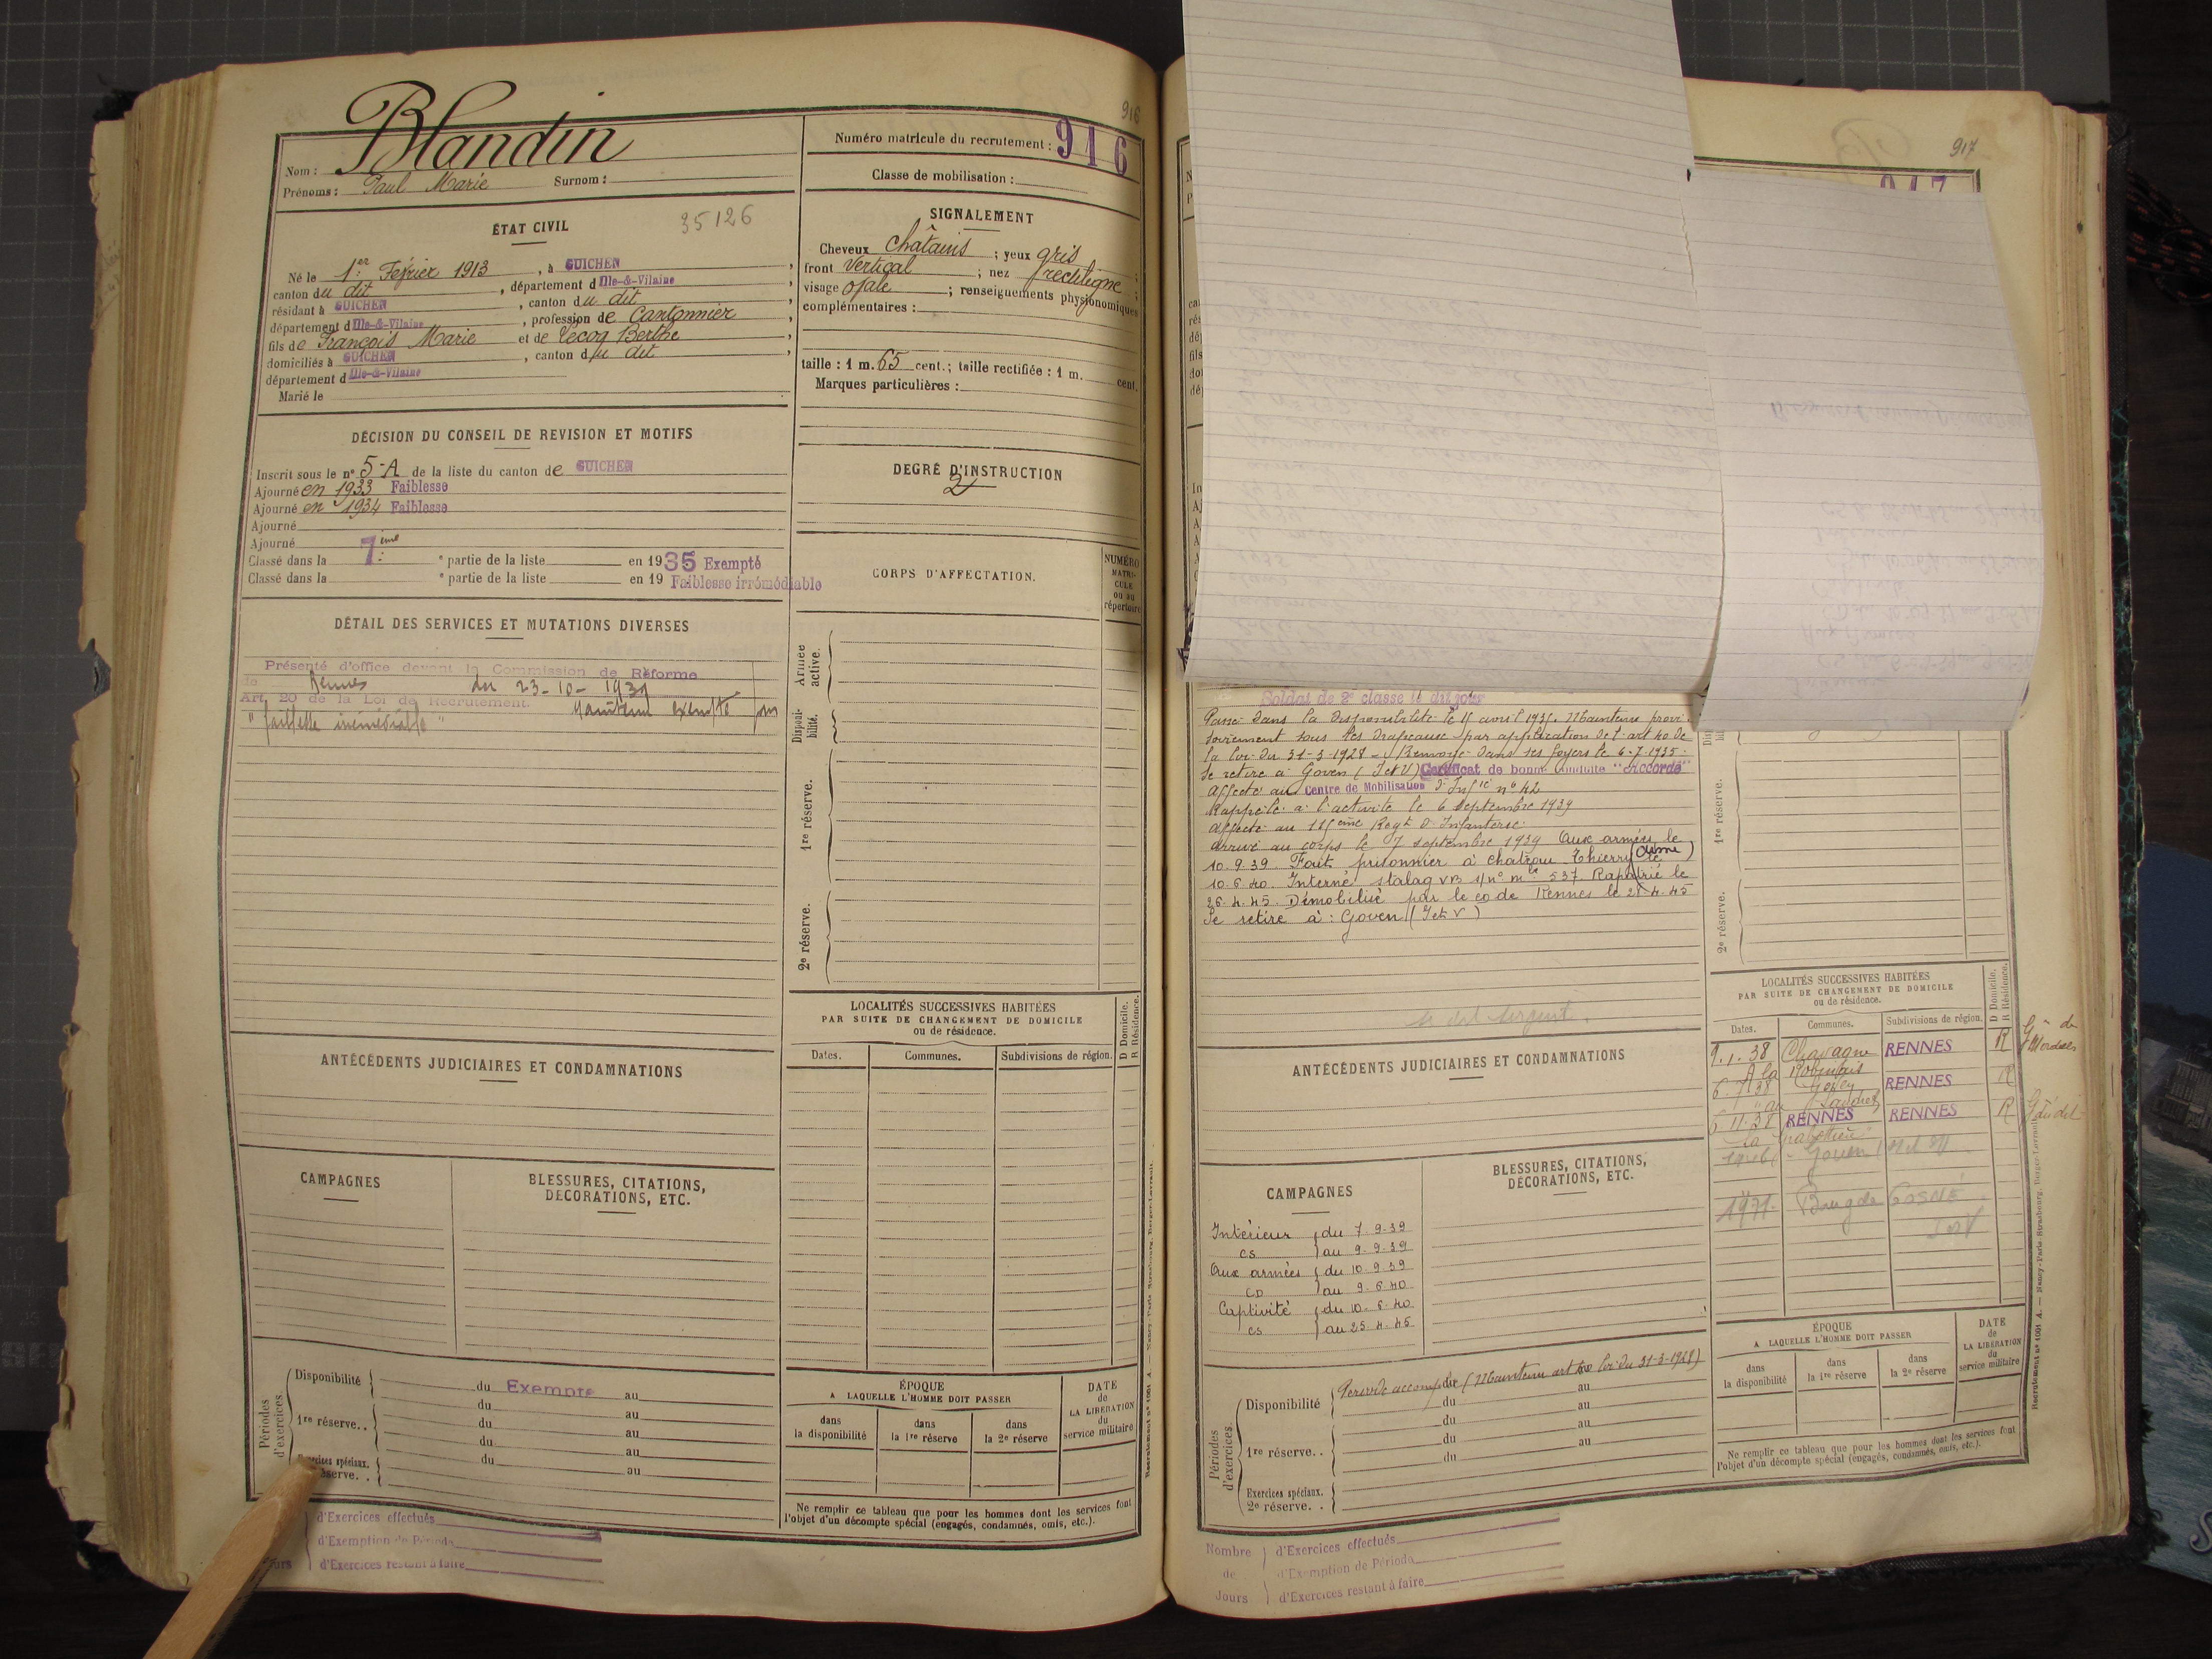 916
Nom : Blandin
Prénoms : Paul Marie Surnom :
Numéro matricule du recrutement : 916
Classe de mobilisation :
ÉTAT CIVIL
35126
Né le 1er Février 1913, à GUICHEN,
canton du dit, département d Ille-&-Vilaine,
résidant à GUICHEN, canton du dit,
département d Ille-&-Vilaine, profession de Cantonnier,
fils de François Marie et de Lecoq Berthe,
domiciliés à GUICHEN, canton du dit,
département d Ille-&-Vilaine
Marié le
SIGNALEMENT
Cheveux châtains ; yeux gris ;
front vertical ; nez rectiligne ;
visage ovale ; renseignements physionomiques
complémentaires :
taille : 1 m. 65 cent.; taille rectifiée : 1 m. cent.
Marques particulières :
DÉCISION DU CONSEIL DE REVISION ET MOTIFS
Inscrit sous le n° 5-A de la liste du canton de GUICHEN
Ajourné en 1933 Faiblesse
Ajourné en 1934 Faiblesse
Ajourné
Ajourné
Classé dans la 7ème e partie de la liste en 1935 Exempté
Classé dans la e partie de la liste en 19 Faiblesse irrémédiable
DEGRÉ D'INSTRUCTION
2
CORPS D'AFFECTATION.
NUMÉRO
MATRI-
CULE
ou au
répertoire
DÉTAIL DES SERVICES ET MUTATIONS DIVERSES
Présenté d'office devant la Commission de Réforme
de Rennes du 23-10-1939
Art. 20 de la Loi de Recrutement. Maintenu exempté pour
"faiblesse irrémédiable"
Armée
active.
Disponi-
bilité.
1re réserve.
2e réserve.
LOCALITÉS SUCCESSIVES HABITÉES
PAR SUITE DE CHANGEMENT DE DOMICILE
ou de résidence.
D Domicile.
R Résidence.
Dates. Communes. Subdivisions de région.
ANTÉCÉDENTS JUDICIAIRES ET CONDAMNATIONS
CAMPAGNES
BLESSURES, CITATIONS,
DÉCORATIONS, ETC.
Périodes
d'exercices
Disponibilité du Exempté au
du au
1re réserve.. du au
du au
Exercices spéciaux. du au
réserve. .
ÉPOQUE
A LAQUELLE L'HOMME DOIT PASSER
dans
la disponibilité
dans
la 1re réserve
dans
la 2e réserve
DATE
de
LA LIBÉRATION
du
service militaire
Ne remplir ce tableau que pour les hommes dont les services font
l'objet d'un décompte spécial (engagés, condamnés, omis, etc.).
d'Exercices effectués
d'Exemption de Période
Jours d'Exercices restant à faire
917
917
Soldat de 2e classe le dit jour
Passé dans la disponibilité le 15 avril 1935. Maintenu provi-
soirement sous les drapeaux par application de l'art 40 de
la loi du 31-3-1928 - Renvoyé dans ses foyers le 6-7-1935.
Se retire à Goven (I et V) Certificat de bonne conduite "Accordé"
Affecté au Centre de Mobilisation d'Infie n° 42
Rappelé à l'activité le 6 septembre 1939
affecté au 115ème Regt d'Infanterie.
arrivé au corps le 7 septembre 1939 Aux armées le
10.9.39. Fait prisonnier à Chateau Thierry (Aisne) le
10.6.40. Interné stalag VB s/n° mle 537. Rapatrié le
26.4.45. Démobilisé par le CO de Rennes le 28.4.45
Se retire à : Goven (I et V)
est sergent.
1re réserve.
2e réserve.
LOCALITÉS SUCCESSIVES HABITÉES
PAR SUITE DE CHANGEMENT DE DOMICILE
ou de résidence.
D Domicile.
R Résidence.
Dates. Communes. Subdivisions de région.
9.1.38 Chavagne RENNES R
A la
6.7.38 Goven RENNES R
au
6 11.38 RENNES RENNES R
la
Goven
1971. Bourg de GOSNÉ
I et V
ANTÉCÉDENTS JUDICIAIRES ET CONDAMNATIONS
CAMPAGNES
Intérieur du 7-9-39
CS au 9-9-39
Aux armées du 10-9-39
CD au 9-6-40
Captivité du 10-6-40
CS au 25-4-45
BLESSURES, CITATIONS,
DÉCORATIONS, ETC.
Périodes
d'exercices.
Disponibilité Période accomplie (Maintenu art 40 loi du 31-3-1928)
du au
du au
1re réserve. . du au
du au
Exercices spéciaux.
2e réserve. .
ÉPOQUE
A LAQUELLE L'HOMME DOIT PASSER
dans
la disponibilité
dans
la 1re réserve
dans
la 2e réserve
DATE
de
LA LIBÉRATION
du
service militaire
Ne remplir ce tableau que pour les hommes dont les services font
l'objet d'un décompte spécial (engagés, condamnés, omis, etc.).
Recrutement n° 1001 A. — Nancy-Paris-Strasbourg, Berger-Levrault.
Nombre d'Exercices effectués
de d'Exemption de Période
Jours d'Exercices restant à faire